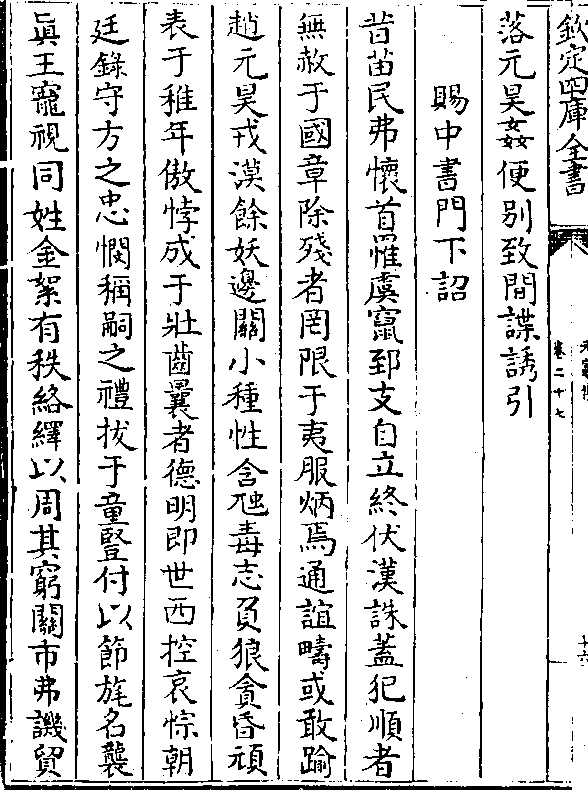 欽定四庫全書
卷二十七
落元昊姦便別致間諜誘引
賜中書門下詔
昔苗民弗懷首罹虞竄郅支自立終伏漢誅蓋犯順者
無赦于國章除殘者罔限于夷服炳焉通誼疇或敢踰
趙元昊戎漠餘妖邊關小種性含虺毒志負狼貪昏頑
表于稚年傲悖成于壯齒曩者德明即世西控哀悰朝
廷錄守方之忠憫稱嗣之禮拔于童豎付以節旄名襲
眞王寵視同姓金絮有秩絡繹以周其窮關市弗譏貿